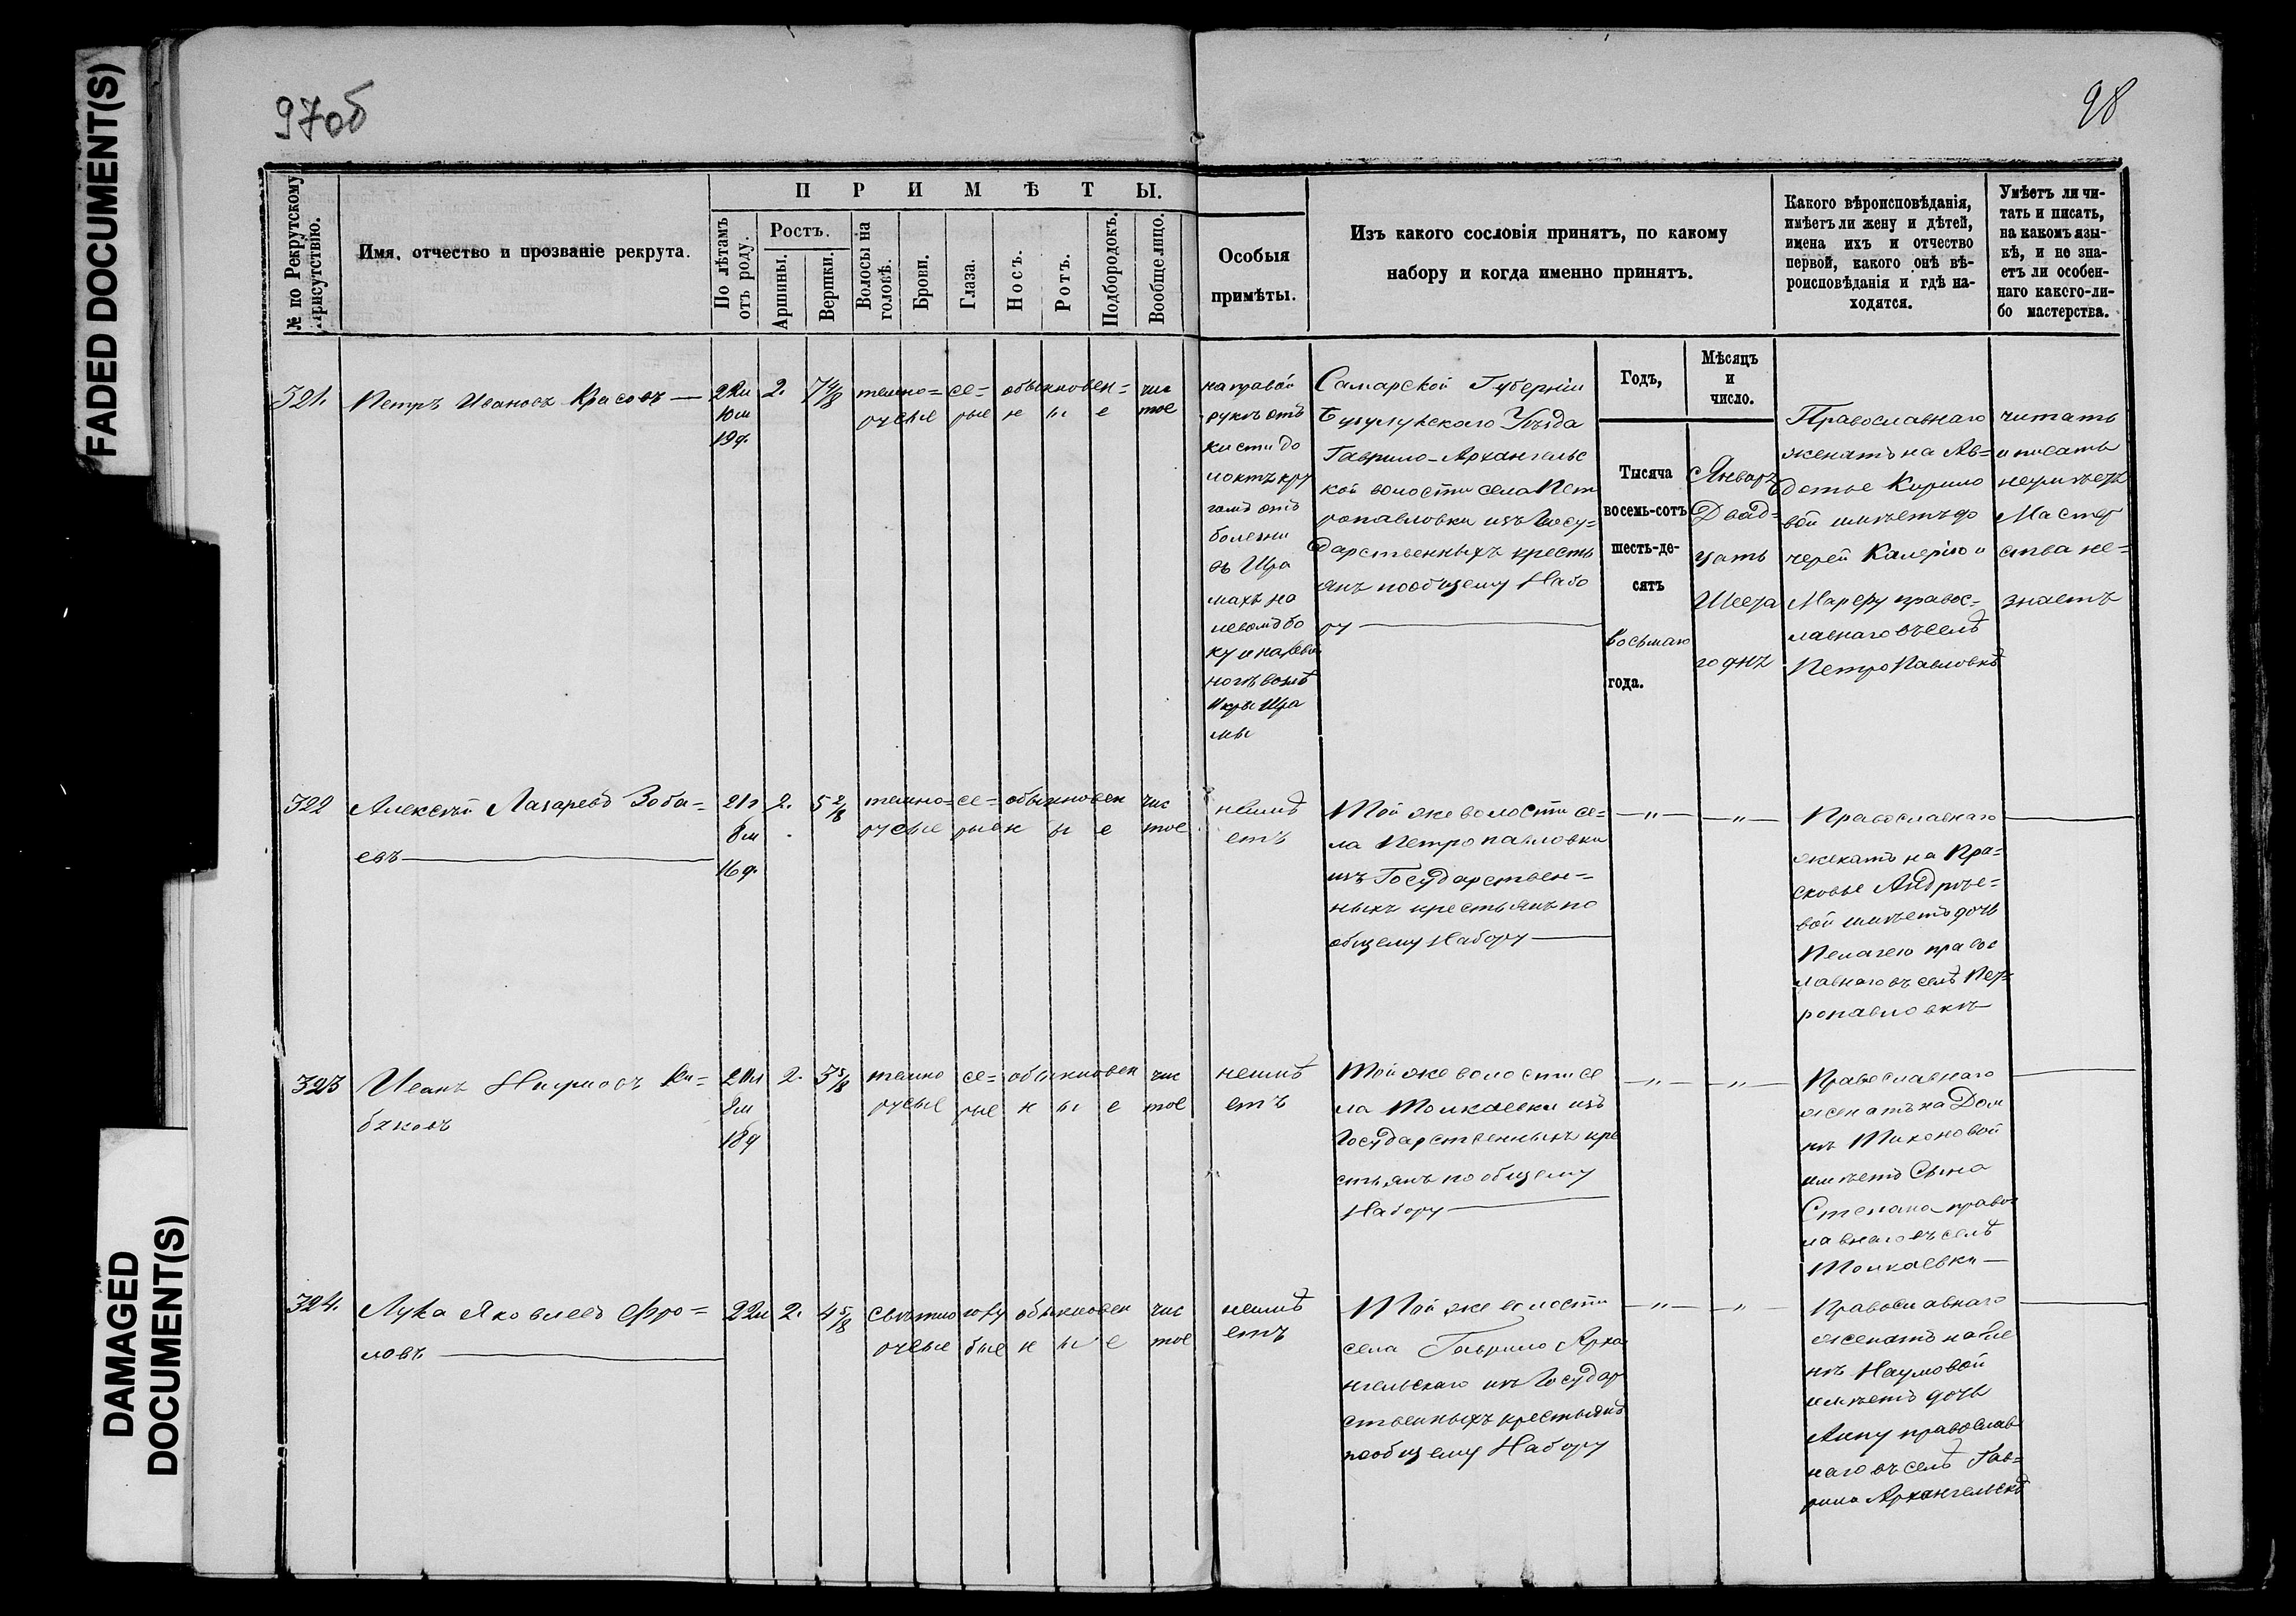 FADED DOCUMENT(S)
DAMAGED
DOCUMENT(S)
97об
98
№ по Рекрутскому
Присутствію.
Имя, отчество и прозваніе рекрута.
ПРИМѢТЫ.
По лѣтамъ
отъ роду.
Ростъ.
Аршины.
Вершки.
Волосы на
головѣ.
Брови.
Глаза.
Носъ.
Ротъ.
Подбородокъ.
Вообще лицо.
Особыя
примѣты.
Изъ какого сословія принятъ, по какому
набору и когда именно принятъ.
Какого вѣроисповѣданія,
имѣетъ ли жену и дѣтей,
имена ихъ и отчество
первой, какого онѣ вѣ-
роисповѣданія и гдѣ на-
ходятся.
Умѣетъ ли чи-
тать и писать,
на какомъ язы-
кѣ, и не зна-
етъ ли особен-
наго какого-ли-
бо мастерства.
321. Петръ Ивановъ Красовъ —
22л
10м
19д.
2.
7 4/8
темно=
русые
се=
рые
обыкновен=
н ы е
чис
тое
на правой
рукѣ отъ
кисти до
локтя кру
гомъ отъ
болезни
въ Шра
махъ на
левомъ бо
ку и на левой
ногѣ возлѣ
Икры Шра
мы
Самарской Губерніи
Бузулукскаго Уѣзда
Гаврило-Архангельс
кой волости села Пет
ропавловки изъ Госу=
дарственныхъ кресть
янъ по общему Набо
ру —
Годъ,
Тысяча
восемь-сотъ
шесть-де-
сятъ
восьмаго
года.
Мѣсяцъ
и
число.
Январь
Двад=
цать
Шеста
го днь
Православнаго
женатъ на Ав=
дотье Кирило
вой имѣетъ до
черей Калерію и
Марфу правос=
лавнаго въ селѣ
ПетроПавловкѣ
читать
и писать
неумѣетъ
Мастер
ства не=
знаетъ
322 Алексѣй Лазаревъ Зоба=
евъ —
21л
8м
16д.
2.
5 2/8
темно=
русые
се=
рые
обыкновен
н ы е
чис
тое
неимѣ
етъ
Той же волости се=
ла Петропавловки
изъ Государствен=
ныхъ крестьянъ по
общему Набору —
— „ —
— „ —
Православнаго
женатъ на Пра=
сковье Андрѣе=
вой имѣетъ дочь
Пелагею правос
лавнаго въ селѣ Пет
ропавловкѣ
323 Иванъ Ки=
бяковъ
8м
18д
2.
3 5/8
темно
русые
се=
рые
обыкновен
н ы е
чис
тое
неимѣ
етъ
Той же волости се
ла Толкаевки изъ
Государственныхъ кре
стьянъ по общему
Набору —
— „ —
— „ —
Православнаго
женатъ на Дом
нѣ Тихоновой
имѣетъ Сына
Степана правос
лавнаго въ селѣ
Толкаевки —
324. Лука Яковлевъ Фро=
ловъ —
22л
2.
4 5/8
свѣтло
русые
голу
бые
обыкновен
н ы е
чис
тое
неимѣ
етъ
Той же волости
села Гаврило Арха
нгельскаго изъ Государ
ственныхъ крестьянъ
по общему Набору
— „ —
— „ —
Православнаго
женатъ на Еле
нѣ Наумовой
имѣетъ дочь
Анну православ
наго въ селѣ Гав=
рило Архангельскѣ